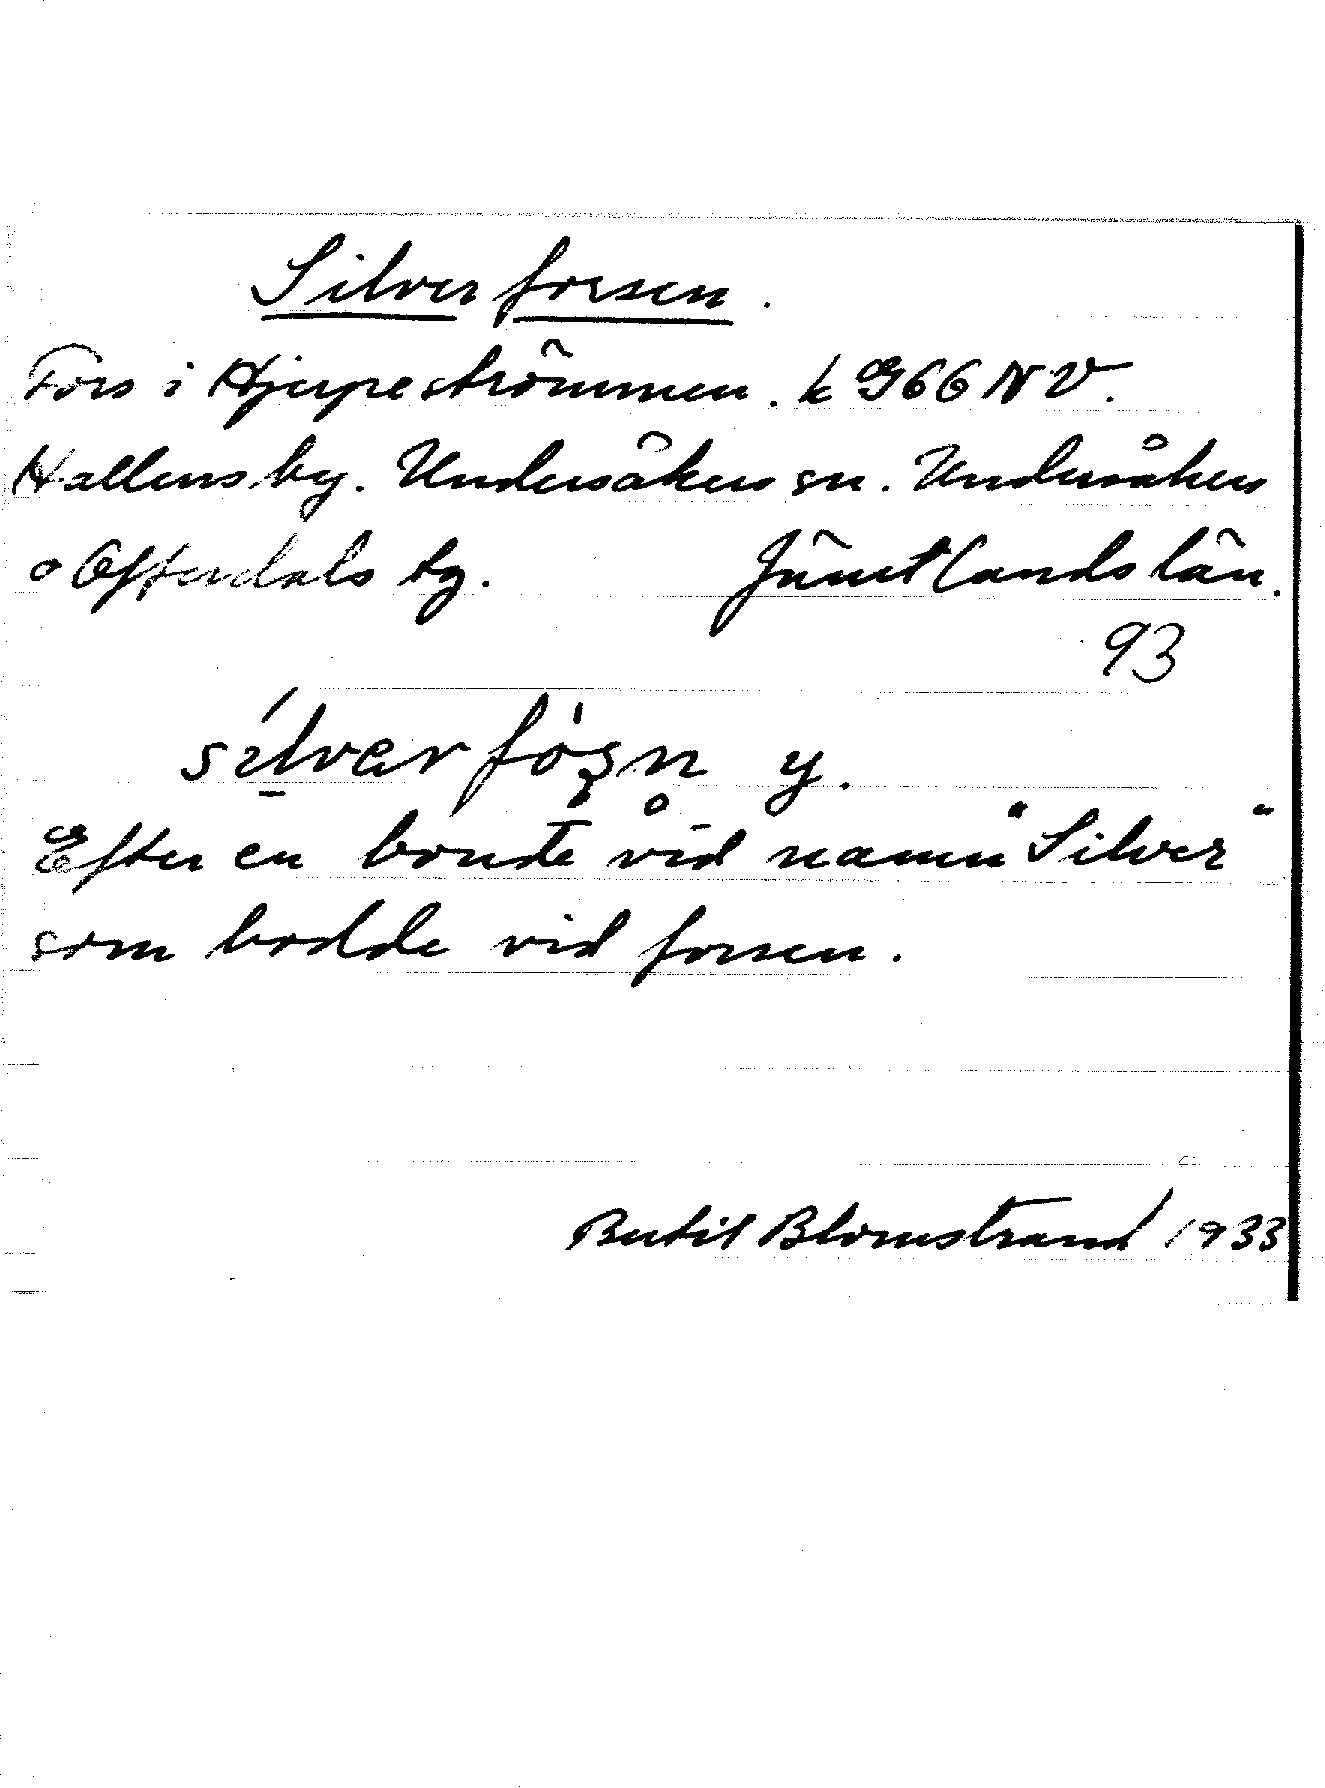 Silverforsen.
Fors i Hjerpeströmmen. k G66 NV.
Hallens by. Undersåkers sn. Undersåkers
o Offerdals tg. Jämtlands län.
93
y.
Efter en bonde vid namn "Silver"
som bodde vid forsen.
Bertil Blomstrand 1933